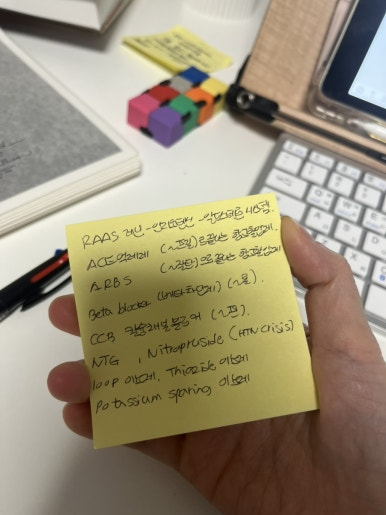 RAAS 레닌-안지오텐신-알도스테론 시스템.
ACE억제제 (~프릴)으로끝나는 항고혈압제
ARBS (~자탄)으로끝나는 항고혈압제
Beta blocker (베타차단제) (~올).
CCB 칼슘채널블로커 (~핀).
NTG, Nitroprusside (HTN crisis)
loop 이뇨제, Thiazide 이뇨제
Potassium sparing 이뇨제